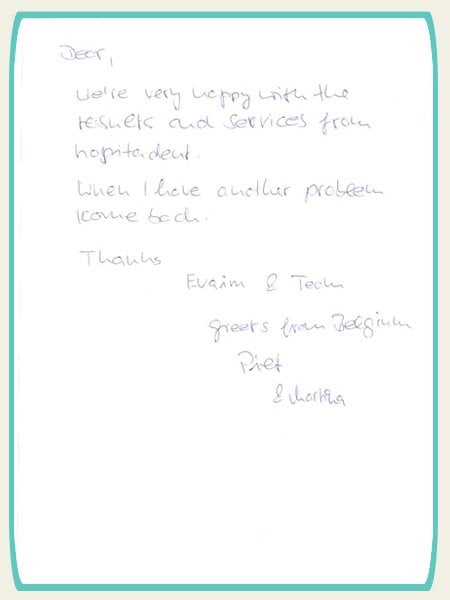 Dear,
We're very happy with the
results and services from
hospitadent.
When I have another problem
I come back.
Thanks
Evrim & Team
greets from Belgium
Piet
& Martina